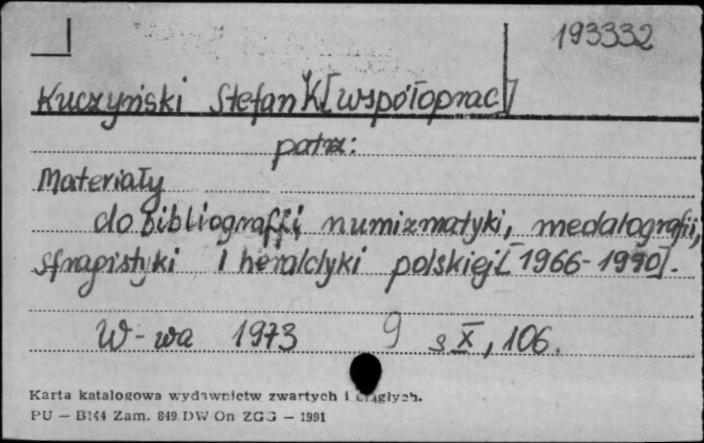 193332
Kuczyński Stefan K[współoprac]
patrz:
Materiały
do bibliografii numizmatyki, medalografii,
sfragistyki i heraldyki polskiej [1966-1990].
W-wa 1973 9 s X, 106.
Karta katalogowa wydawnictw zwartych i ciągłych.
PU — B144 Zam. 849 DW On ZGG — 1991